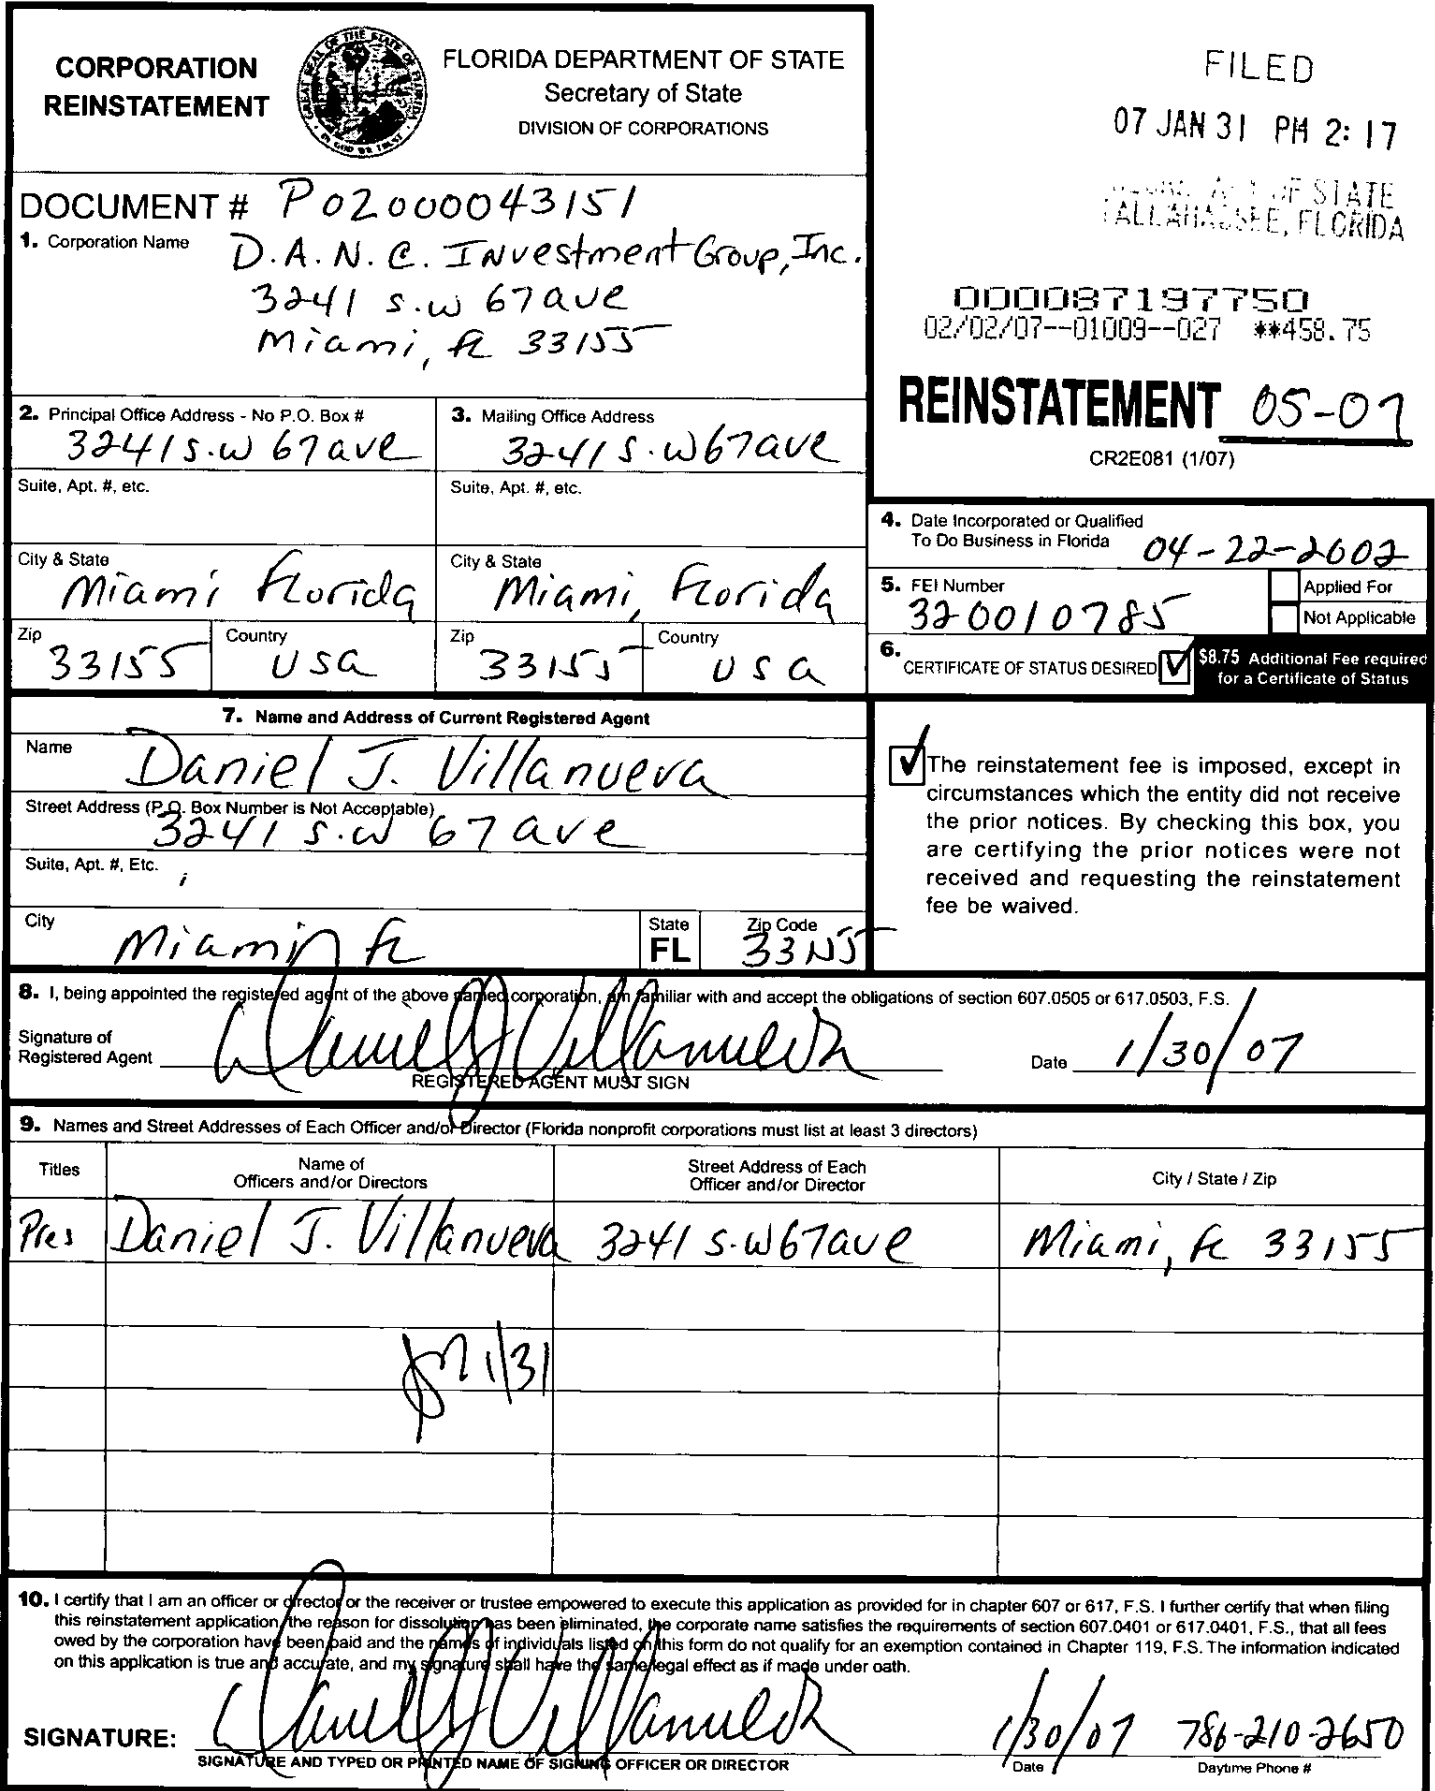 CORPORATION
REINSTATEMENT
GREAT SEAL OF THE STATE OF FLORIDA
IN GOD WE TRUST
FLORIDA DEPARTMENT OF STATE
Secretary of State
DIVISION OF CORPORATIONS
FILED
07 JAN 31 PM 2:17
OF STATE
TALLAHASSEE, FLORIDA
DOCUMENT # P02000043151
1. Corporation Name D.A.N.C. Investment Group, Inc.
3241 s.w 67 ave
Miami, FL 33155
000087197750
02/02/07--01009--027 **458.75
REINSTATEMENT 05-07
CR2E081 (1/07)
2. Principal Office Address - No P.O. Box #
3241 s.w 67 ave
3. Mailing Office Address
3241 s.w 67 ave
Suite, Apt. #, etc.
Suite, Apt. #, etc.
City & State
Miami Florida
City & State
Miami, Florida
Zip 33155
Country USA
Zip 33155
Country USA
4. Date Incorporated or Qualified
To Do Business in Florida 04-22-2002
5. FEI Number
320010785
Applied For
Not Applicable
6. CERTIFICATE OF STATUS DESIRED
$8.75 Additional Fee required
for a Certificate of Status
7. Name and Address of Current Registered Agent
Name Daniel J. Villanueva
Street Address (P.O. Box Number is Not Acceptable)
3241 s.w 67 ave
Suite, Apt. #, Etc.
City Miami FL
State
FL
Zip Code
33155
The reinstatement fee is imposed, except in
circumstances which the entity did not receive
the prior notices. By checking this box, you
are certifying the prior notices were not
received and requesting the reinstatement
fee be waived.
8. I, being appointed the registered agent of the above named corporation, am familiar with and accept the obligations of section 607.0505 or 617.0503, F.S.
Signature of
Registered Agent Daniel J Villanueva
Date 1/30/07
REGISTERED AGENT MUST SIGN
9. Names and Street Addresses of Each Officer and/or Director (Florida nonprofit corporations must list at least 3 directors)
Titles
Name of
Officers and/or Directors
Street Address of Each
Officer and/or Director
City / State / Zip
Pres Daniel J. Villanueva 3241 s.w 67 ave Miami, FL 33155
1/31
10. I certify that I am an officer or director or the receiver or trustee empowered to execute this application as provided for in chapter 607 or 617, F.S. I further certify that when filing
this reinstatement application, the reason for dissolution has been eliminated, the corporate name satisfies the requirements of section 607.0401 or 617.0401, F.S., that all fees
owed by the corporation have been paid and the names of individuals listed on this form do not qualify for an exemption contained in Chapter 119, F.S. The information indicated
on this application is true and accurate, and my signature shall have the same legal effect as if made under oath.
SIGNATURE: Daniel J Villanueva 1/30/07 786-210-2650
SIGNATURE AND TYPED OR PRINTED NAME OF SIGNING OFFICER OR DIRECTOR
Date
Daytime Phone #